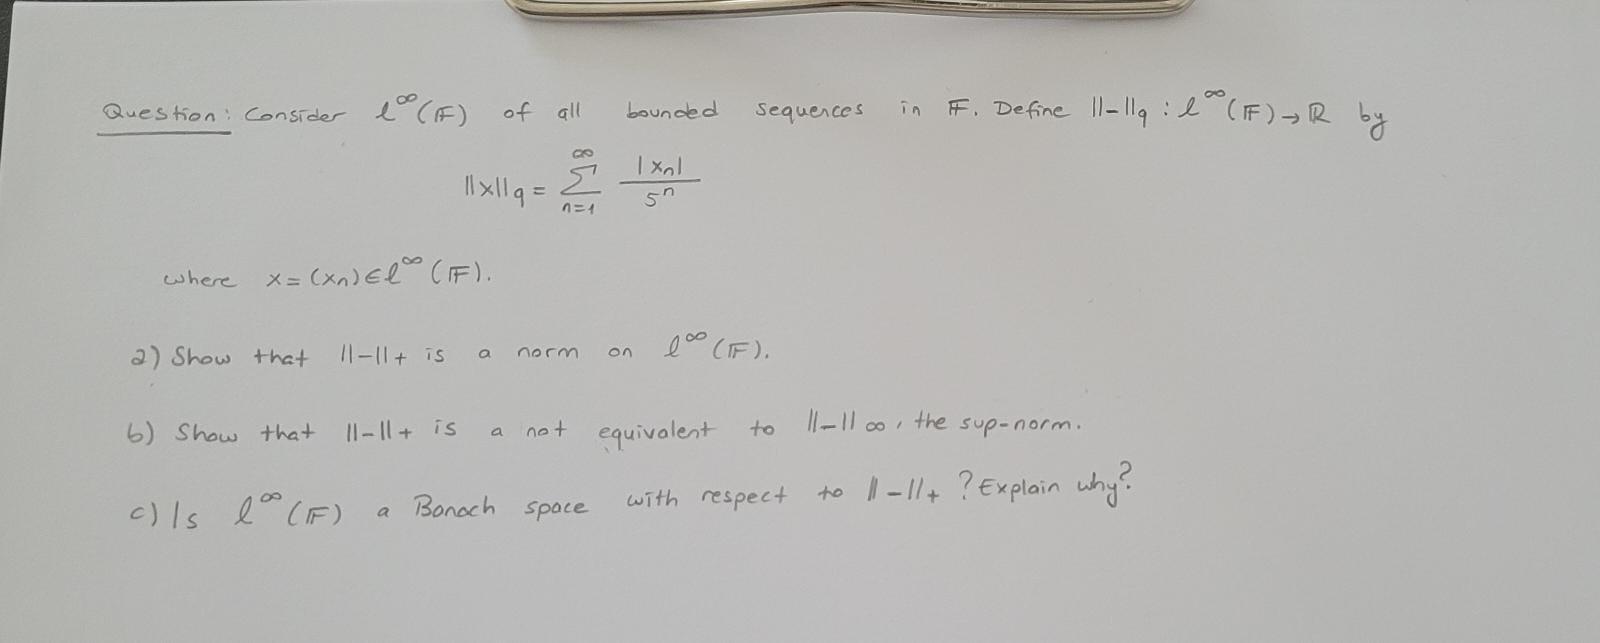 Question: Consider l^∞(𝔽) of all bounded sequences in 𝔽. Define ||-||q : l^∞(𝔽) → ℝ by
||x||q = ∑_{n=1}^{∞} |xn| / 5^n
where x = (xn) ∈ l^∞(𝔽).
a) Show that ||-||+ is a norm on l^∞(𝔽).
b) Show that ||-||+ is a not equivalent to ||-||∞, the sup-norm.
c) Is l^∞(𝔽) a Banach space with respect to ||-||+ ? Explain why?